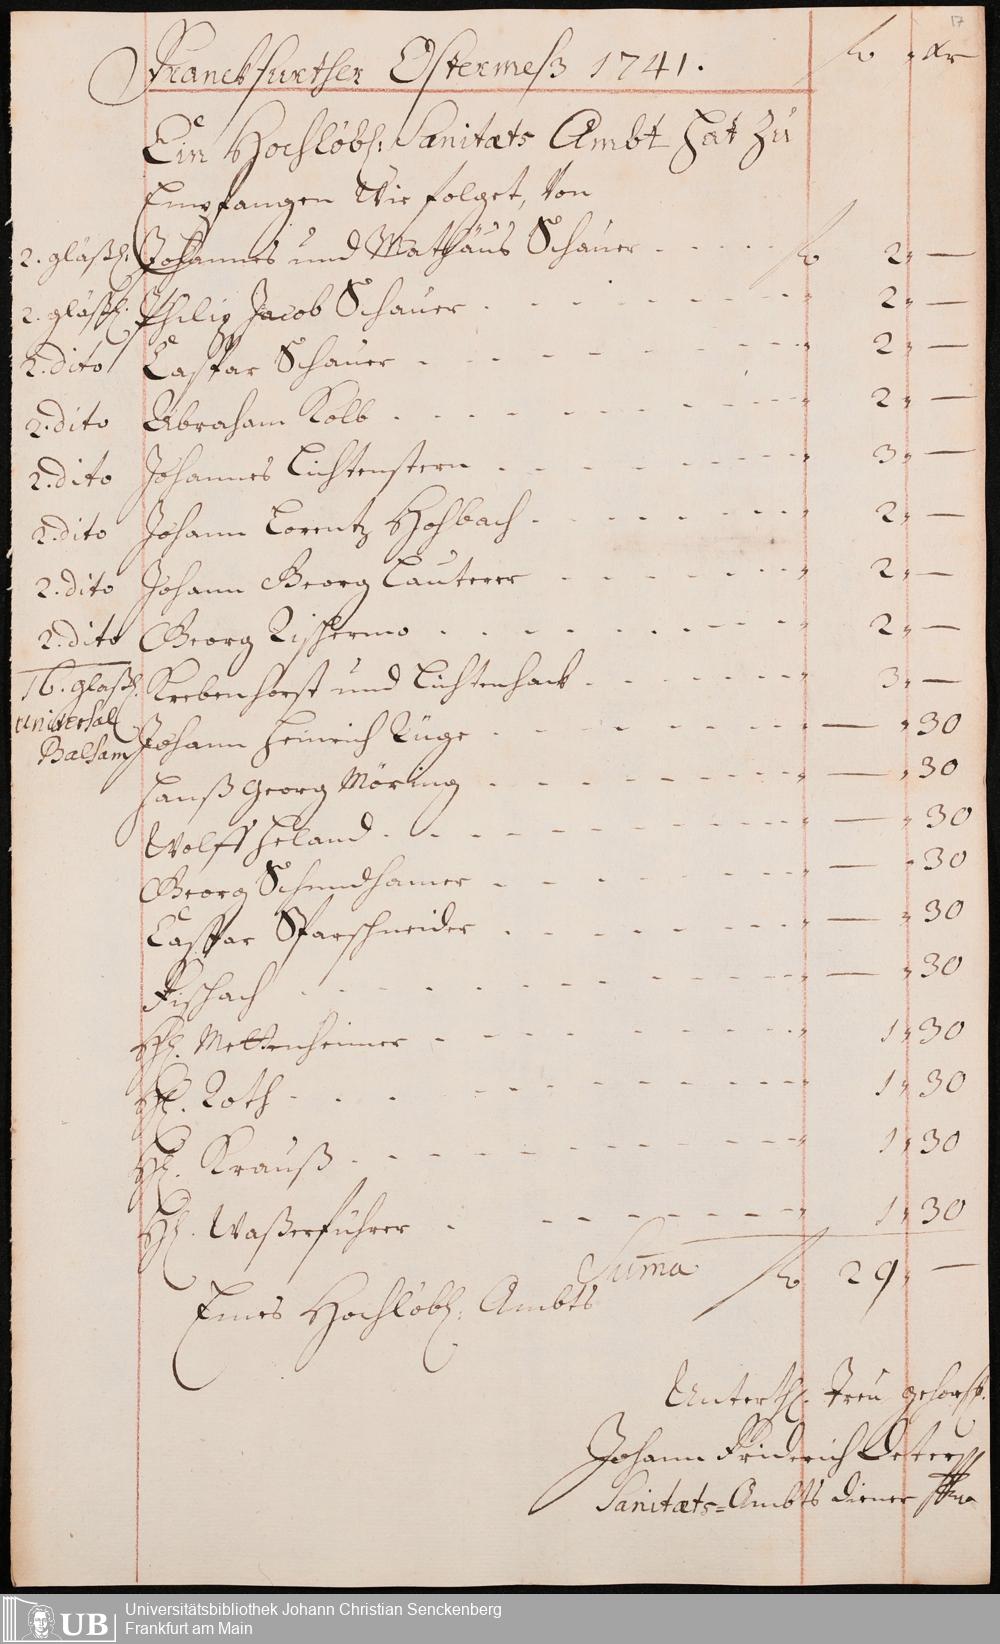 17
Franckfurther Ostermeß 1741. fl xr
Ein Hochlöbl: Sanitæts Ambt hat zu
Empfangen Wie folget, Von
2. gläßl. Johannes und Mathäus Schauer - - - - - fl 2 „ —
2. gläßl. Philip Jacob Schauer - - - - - - - „ 2 „ —
2. dito Caspar Schauer - - - - - - - „ 2 „ —
2. dito Abraham Kolb - - - - - - - „ 2 „ —
2. dito Johannes Lichtenstern - - - - - - „ 3 „ —
2. dito Johann Lorentz Hohbach - - - - - - „ 2 „ —
2. dito Johann Georg Lauterer - - - - - - „ 2 „ —
2. dito Georg - - - - - - - „ 2 „ —
16. glaßl. Krebenhorst und Lichtenhack - - - - - „ 3 „ —
universal
Balsam Johann Heinrich Rüge - - - - - - „ — „ 30
Hanß Georg Möring - - - - - - „ — „ 30
Wolff Heland - - - - - - - „ — „ 30
Georg - - - - - - „ — „ 30
Caspar Sparschneider - - - - - - „ — „ 30
Fischach - - - - - - - „ — „ 30
HE. Mettenheimer - - - - - - - „ 1 „ 30
HE. Roth - - - - - - - „ 1 „ 30
HE. Krauß - - - - - - - „ 1 „ 30
HE. Waßerführer - - - - - - „ 1 „ 30
Suma fl 29 „ —
Eines Hochlöbl: Ambts
Unterth. Treu gehorsst.
Johann Friderich Deter
Sanitæts=Ambts diener
UB
Universitätsbibliothek Johann Christian Senckenberg
Frankfurt am Main